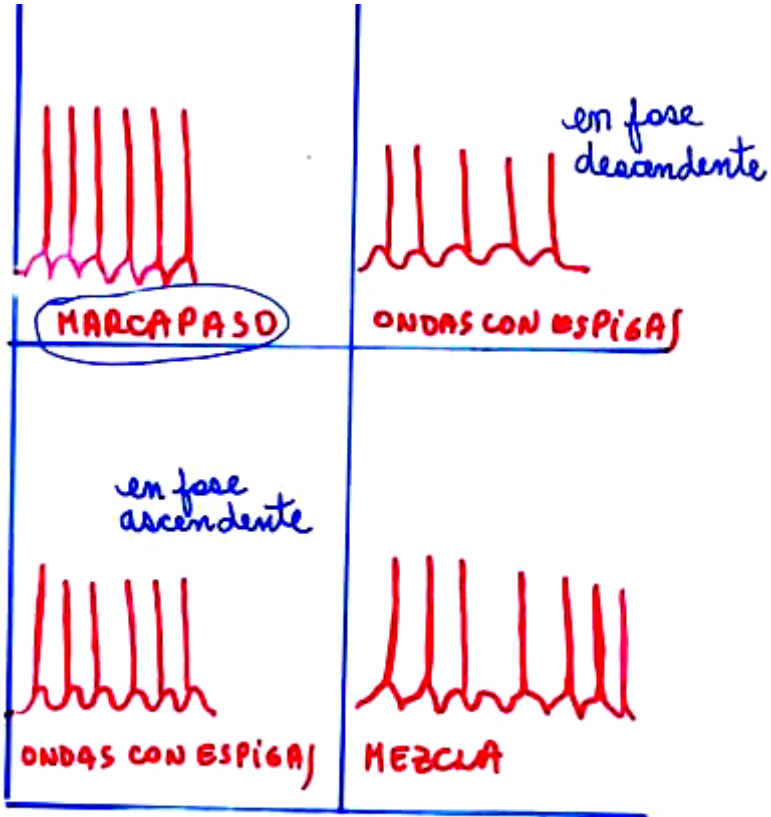 MARCAPASO
en fase
descendente
ONDAS CON ESPIGAS
en fase
ascendente
ONDAS CON ESPIGAS
MEZCLA